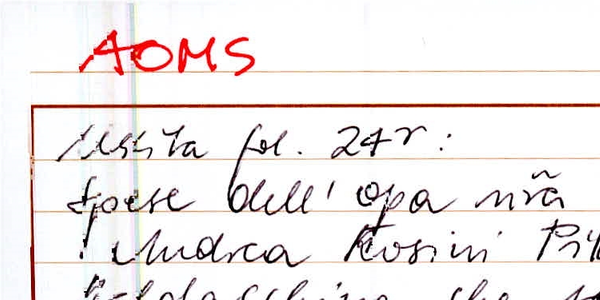 AOMS
Uscita fol. 24r:
Spese dell'opa nrã
Andrea Rosini
che